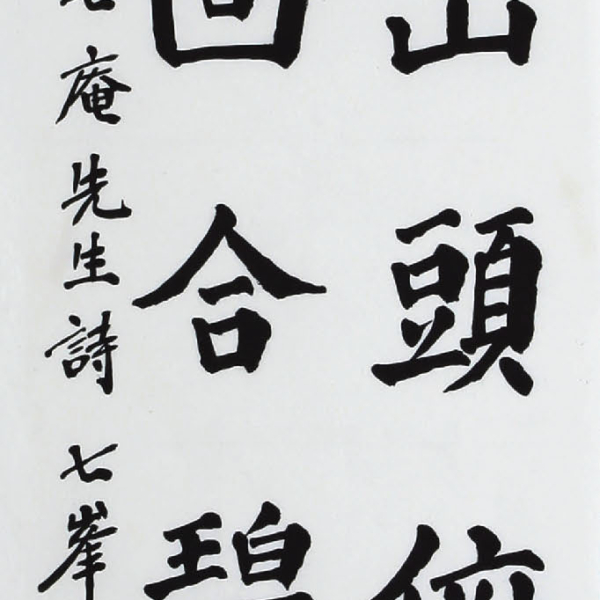 山頭
回合碧
庵先生詩 七峯